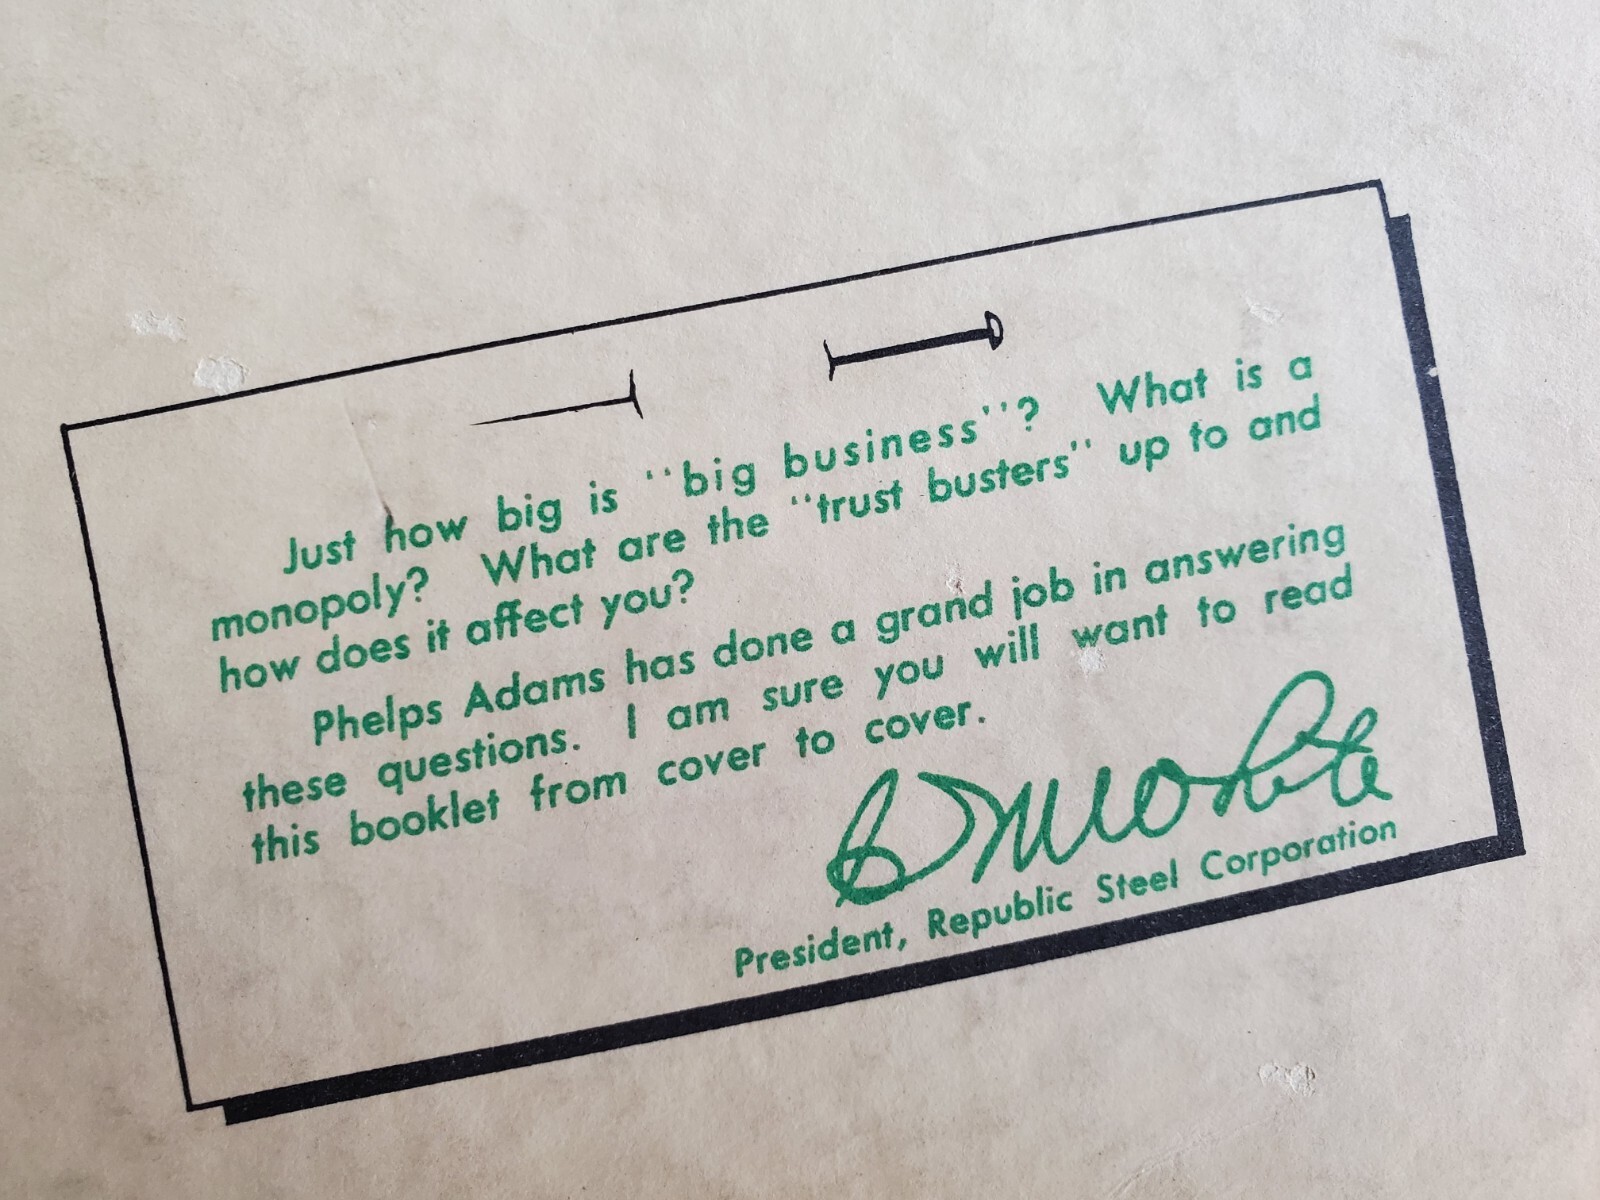 Just how big is "big business"? What is a
monopoly? What are the "trust busters" up to and
how does it affect you?
Phelps Adams has done a grand job in answering
these questions. I am sure you will want to read
this booklet from cover to cover.
President, Republic Steel Corporation